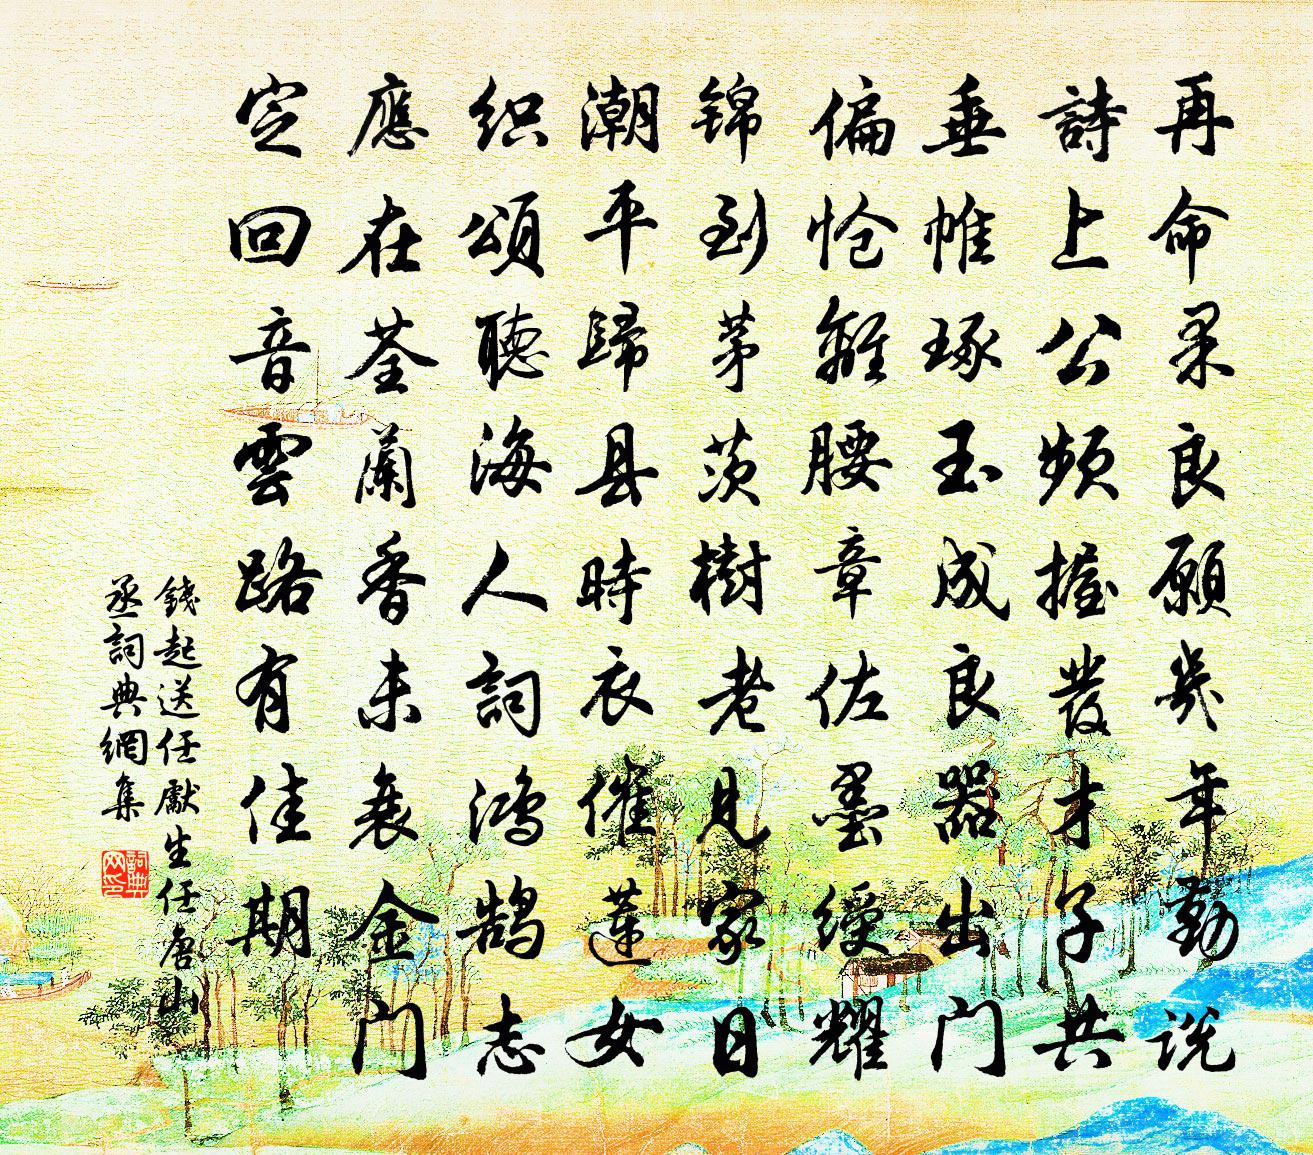 再命果良願幾年勤説
詩上公頻握發才子共
垂帷琢玉成良器出门
偏怆離腰章佐墨綬耀
锦到茅茨樹老見家日
潮平歸县時衣催蓮女
织頌聽海人詞鴻鵠志
應在荃蘭香未衰金门
定回音雲路有佳期
錢起送任獻生任唐山
丞詞典網集
詞典
网印